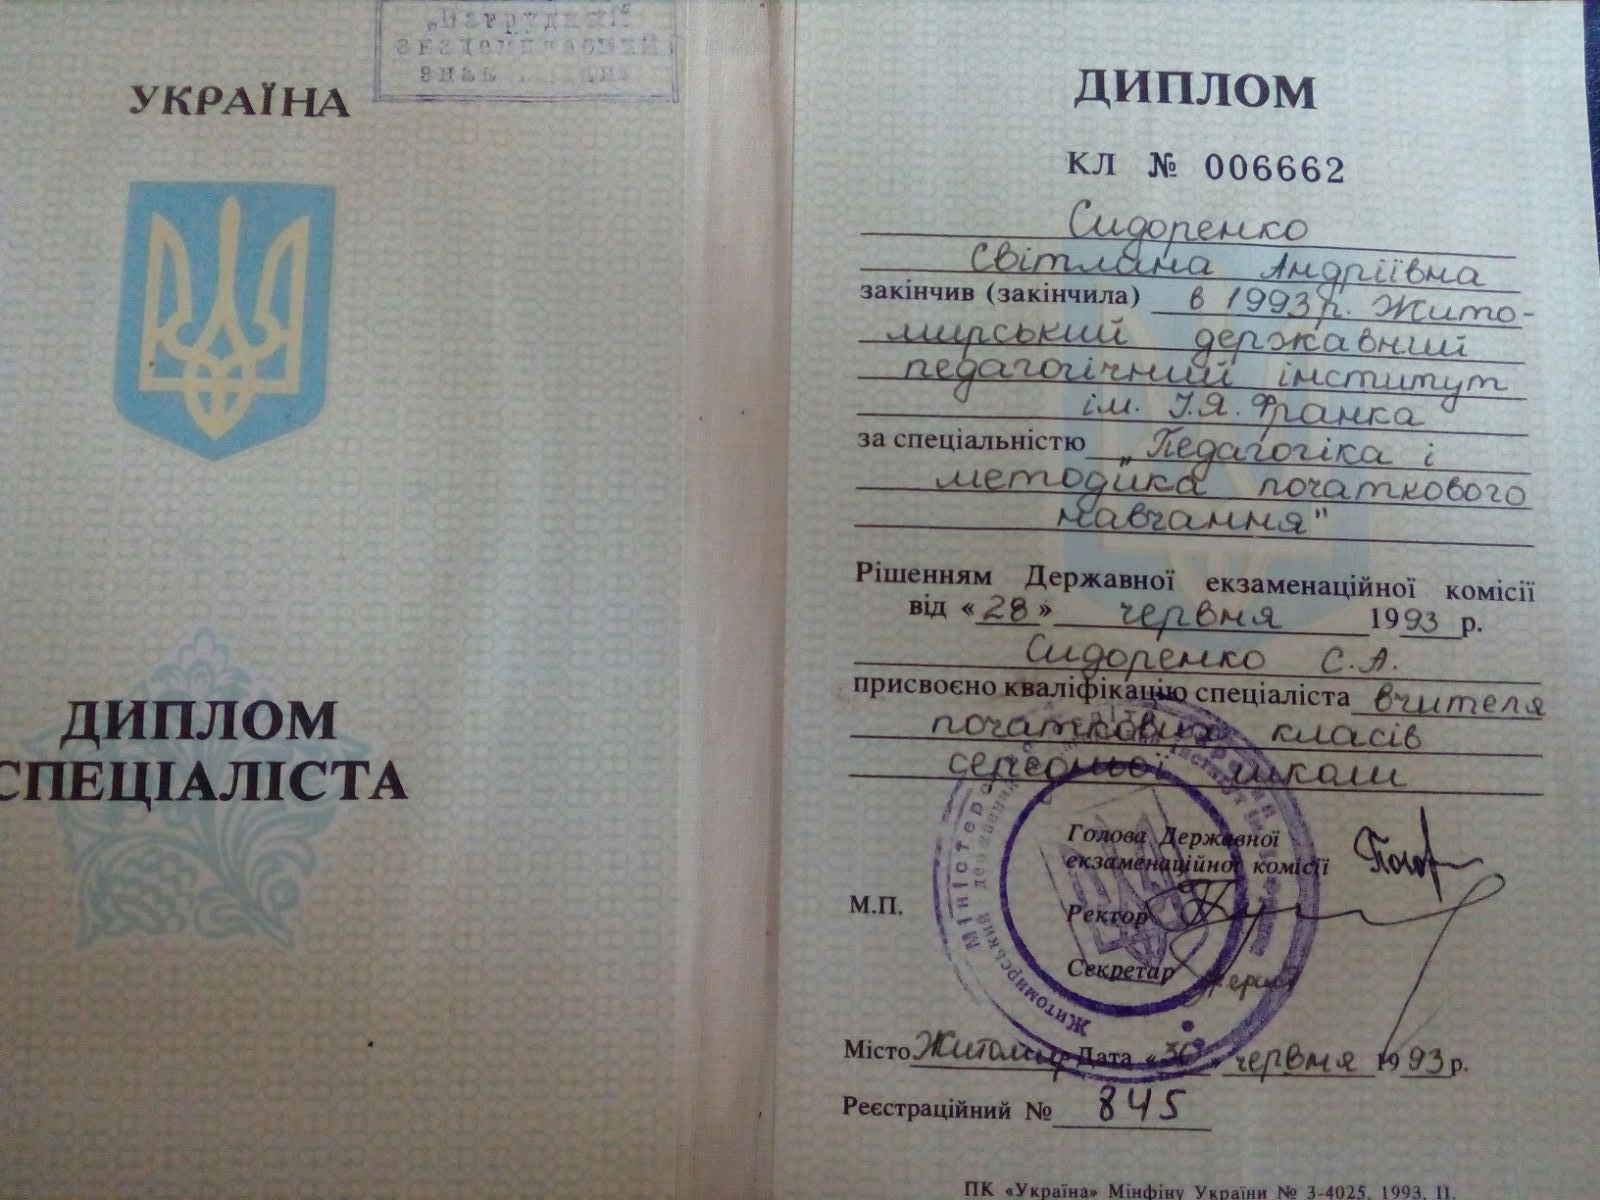 „Нагрудний
академічний
знак видано
УКРАЇНА
ДИПЛОМ
СПЕЦІАЛІСТА
ДИПЛОМ
КЛ № 006662
Сидоренко
Світлана Андріївна
закінчив (закінчила) в 1993 р. Жито-
мирський державний
педагогічний інститут
ім. І.Я. Франка
за спеціальністю „Педагогіка і
методика початкового
навчання"
Рішенням Державної екзаменаційної комісії
від «28» червня 1993 р.
Сидоренко С.А.
присвоєно кваліфікацію спеціаліста вчителя
початкових класів
середньої школи
Голова Державної
екзаменаційної комісії
М.П.
Ректор
Секретар
Житомирський державний
Місто Житомир Дата «30» червня 1993 р.
Реєстраційний № 845
ПК «Україна» Мінфіну України № 3-4025, 1993, II.